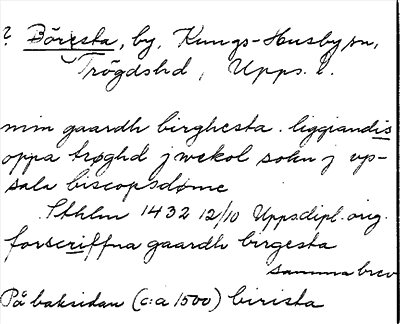 ? Böresta, by, Kungs-Husby sn,
Trögds hd, Upps. l.
min gaardh birghesta. liggiandis
oppa trøghd j wekol sokn j vp-
sala biscopsdøme
Sthlm 1432 12/10 Uppsdipl. orig.
forscriffna gaardh birgesta
samma brev
På baksidan (c:a 1500) birista